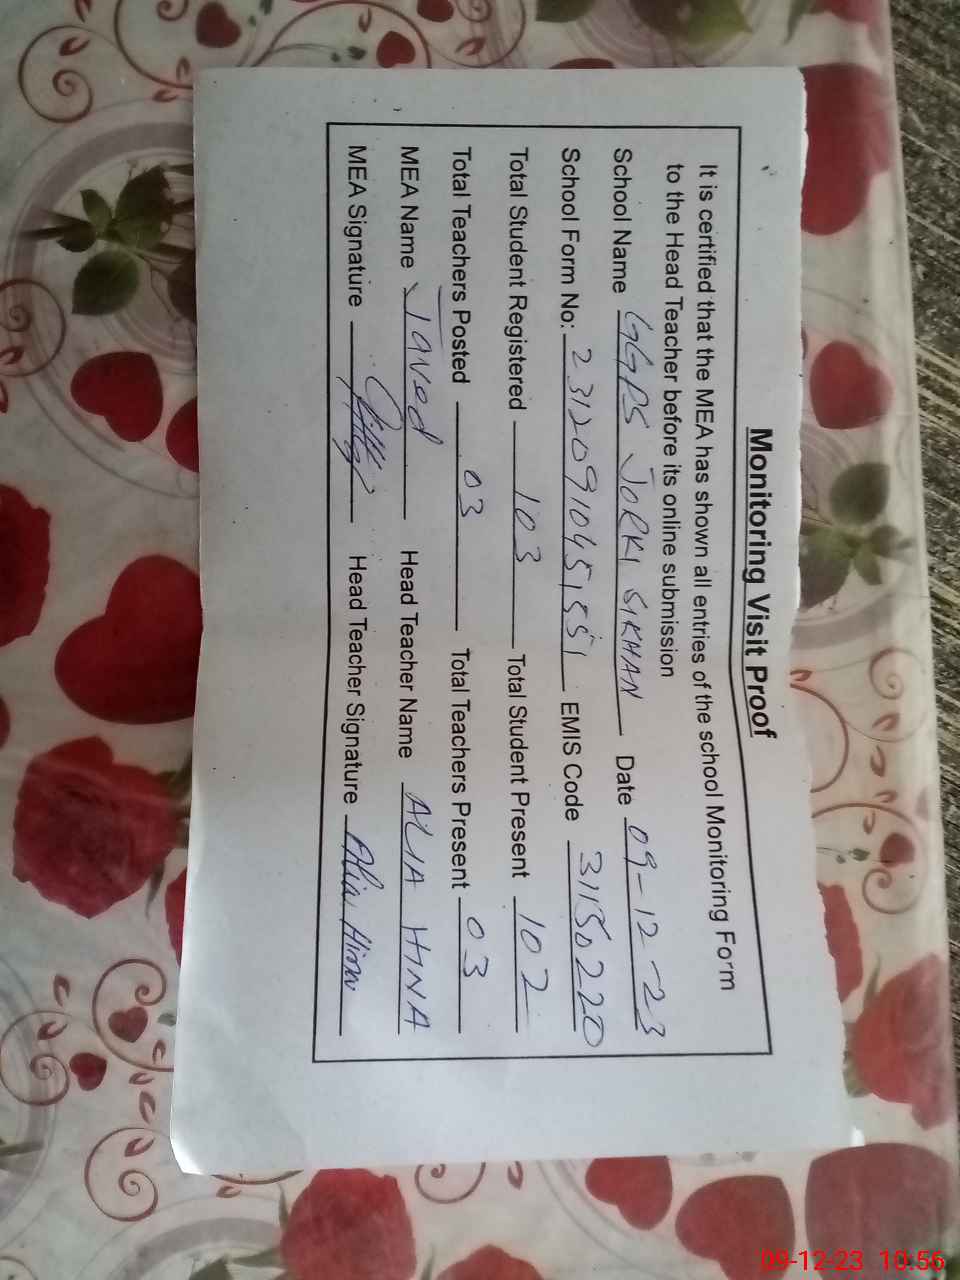 Monitoring Visit Proof
It is certified that the MEA has shown all entries of the school Monitoring Form
to the Head Teacher before its online submission
School Name GGPS JORKI SIKHAN Date 09-12-23
School Form No: 2312091045151 EMIS Code 31150220
Total Student Registered 103 Total Student Present 102
Total Teachers Posted 03 Total Teachers Present 03
MEA Name Javed Head Teacher Name ALIA HINA
MEA Signature Head Teacher Signature Alia Hina
09-12-23 10:56